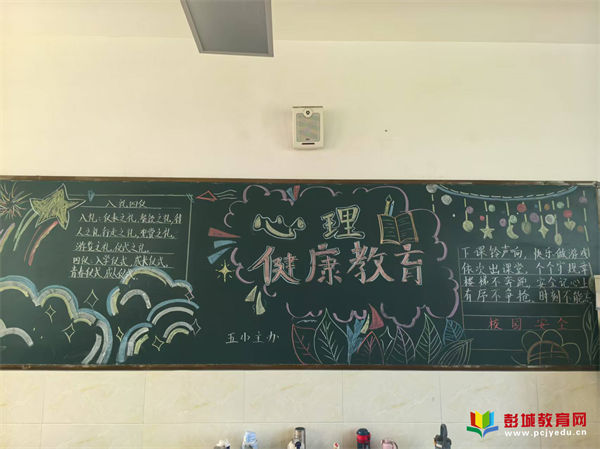 八礼四仪
八礼：仪表之礼、餐饮之礼、待
人之礼、行走之礼、观赏之礼、
游览之礼、仪式之礼。
四仪：入学仪式、成长仪式、
青春仪式、成人仪式。
心理
健康教育
五小主办
下课铃声响，快乐做游戏
依次出课堂，个个守规章
楼梯不奔跑，安全记心上
有序不争抢，时刻不能忘
校园安全
彭城教育网
www.pcjyedu.cn